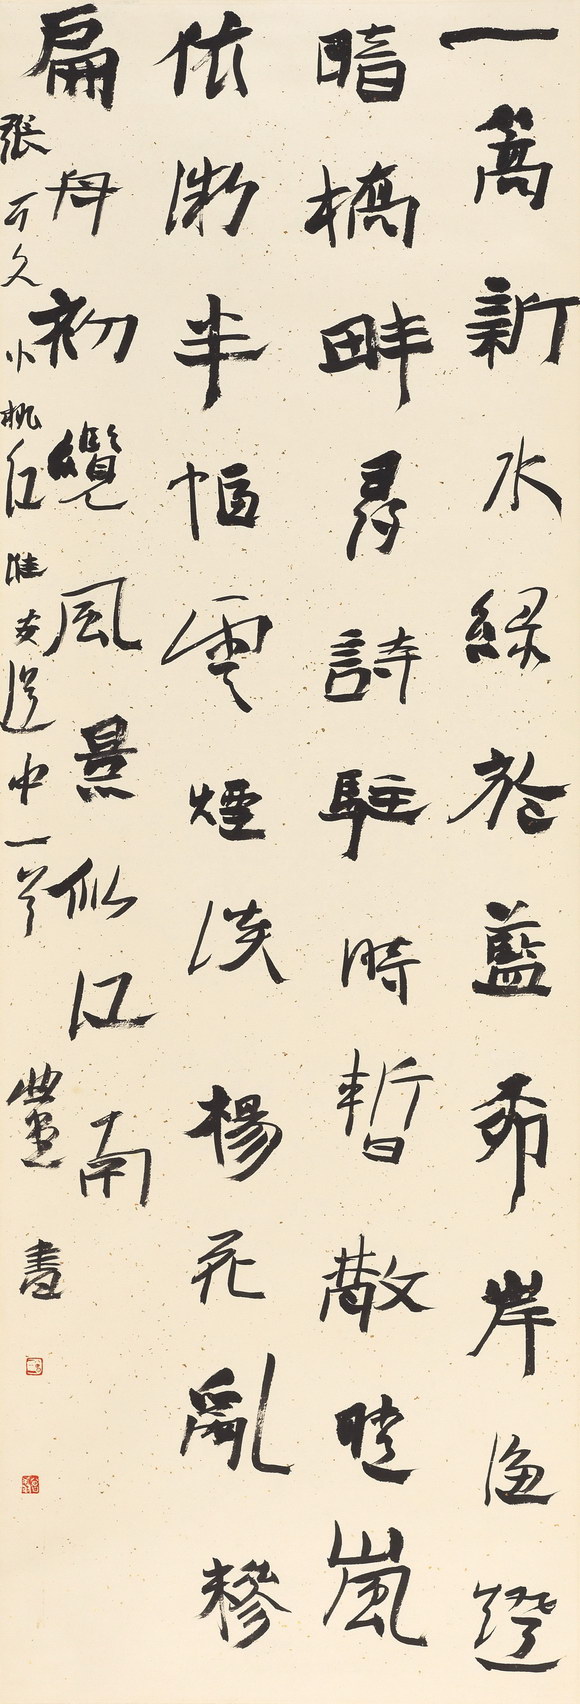 一篙新水綠於藍柳岸漁燈
暗橋畔尋詩駐時暫散晴嵐
依微半幅雲煙淡楊花亂糝
扁舟初纜風景似江南
張可久小桃紅淮安道中一首 書